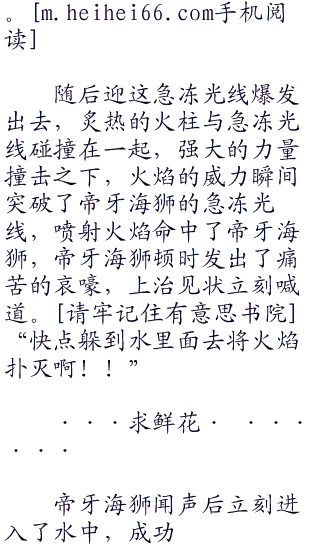 。[m.heihei66.com手机阅
读]
随后迎这急冻光线爆发
出去，炙热的火柱与急冻光
线碰撞在一起，强大的力量
撞击之下，火焰的威力瞬间
突破了帝牙海狮的急冻光
线，喷射火焰命中了帝牙海
狮，帝牙海狮顿时发出了痛
苦的哀嚎，上治见状立刻喊
道。[请牢记住有意思书院]
“快点躲到水里面去将火焰
扑灭啊！！”
···求鲜花· ···
···
帝牙海狮闻声后立刻进
入了水中，成功